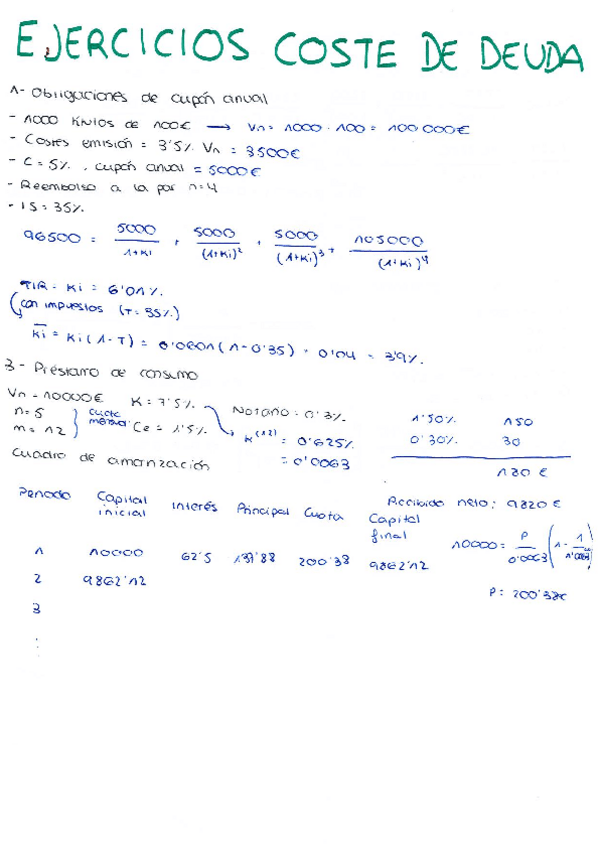 EJERCICIOS COSTE DE DEUDA
1- Obligaciones de cupón anual
- 1000 títulos de 100€ → Vn = 1000 · 100 = 100 000€
- Costes emisión = 3'5% Vn = 3500€
- C = 5% , cupón anual = 5000€
- Reembolso a la par n=4
- IS = 35%.
96500 = 5000/(1+Ki) + 5000/(1+Ki)² + 5000/(1+Ki)³ + 105000/(1+Ki)⁴
TIR = Ki = 6'01%.
con impuestos (T= 35%)
Ki = Ki (1-T) = 0'0601 (1-0'35) = 0'04 = 3'9%.
3- Préstamo de consumo
Vn = 10000€ K = 7'5% Notario = 0'3%. 1'50% 150
n=5 m= 12 } cuota mensual Ce = 1'5%. K⁽¹²⁾ = 0'625% 0'30% 30
= 0'0063
Cuadro de amortización 180 €
Periodo Capital inicial Interés Principal Cuota Capital final Recibido neto: 9820 €
10000 = P/0'0063 (1 - 1/1'0063
1 10000 62'5 137'88 200'38 9862'12
2 9862'12 P = 200'38€
3
⋮